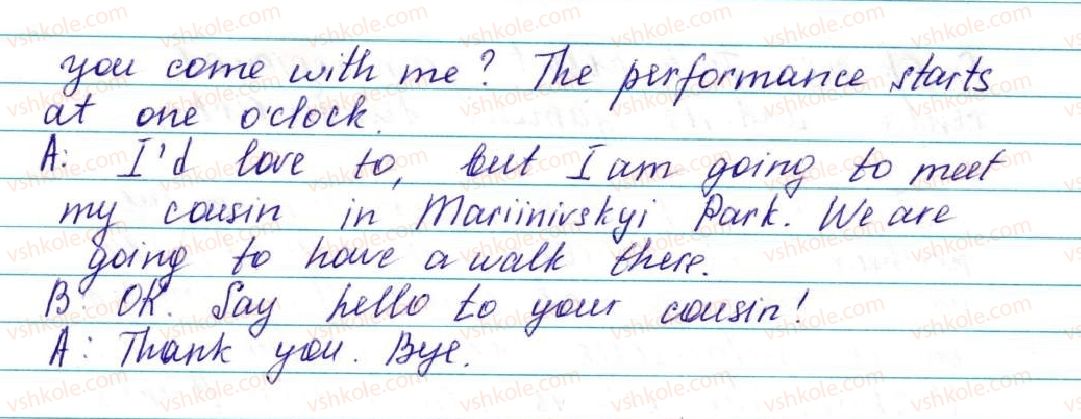 you come with me? The performance starts
at one o'clock.
A: I'd love to, but I am going to meet
my cousin in Mariinivskyi Park. We are
going to have a walk there.
B: OK. Say hello to your cousin!
A: Thank you. Bye.